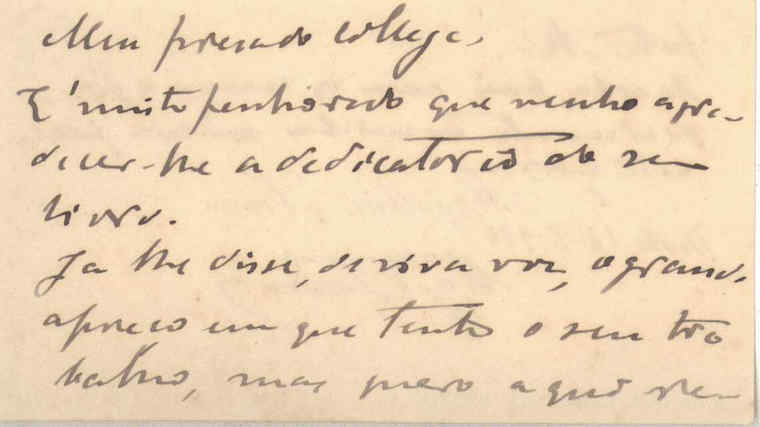 Meu presado collega,
É muito penhorado que venho agra-
decer-lhe a dedicatoria do seu
livro.
Ja lhe disse, de viva voz, o grande
apreço em que tenho o seu tra
balho, mas quero aqui